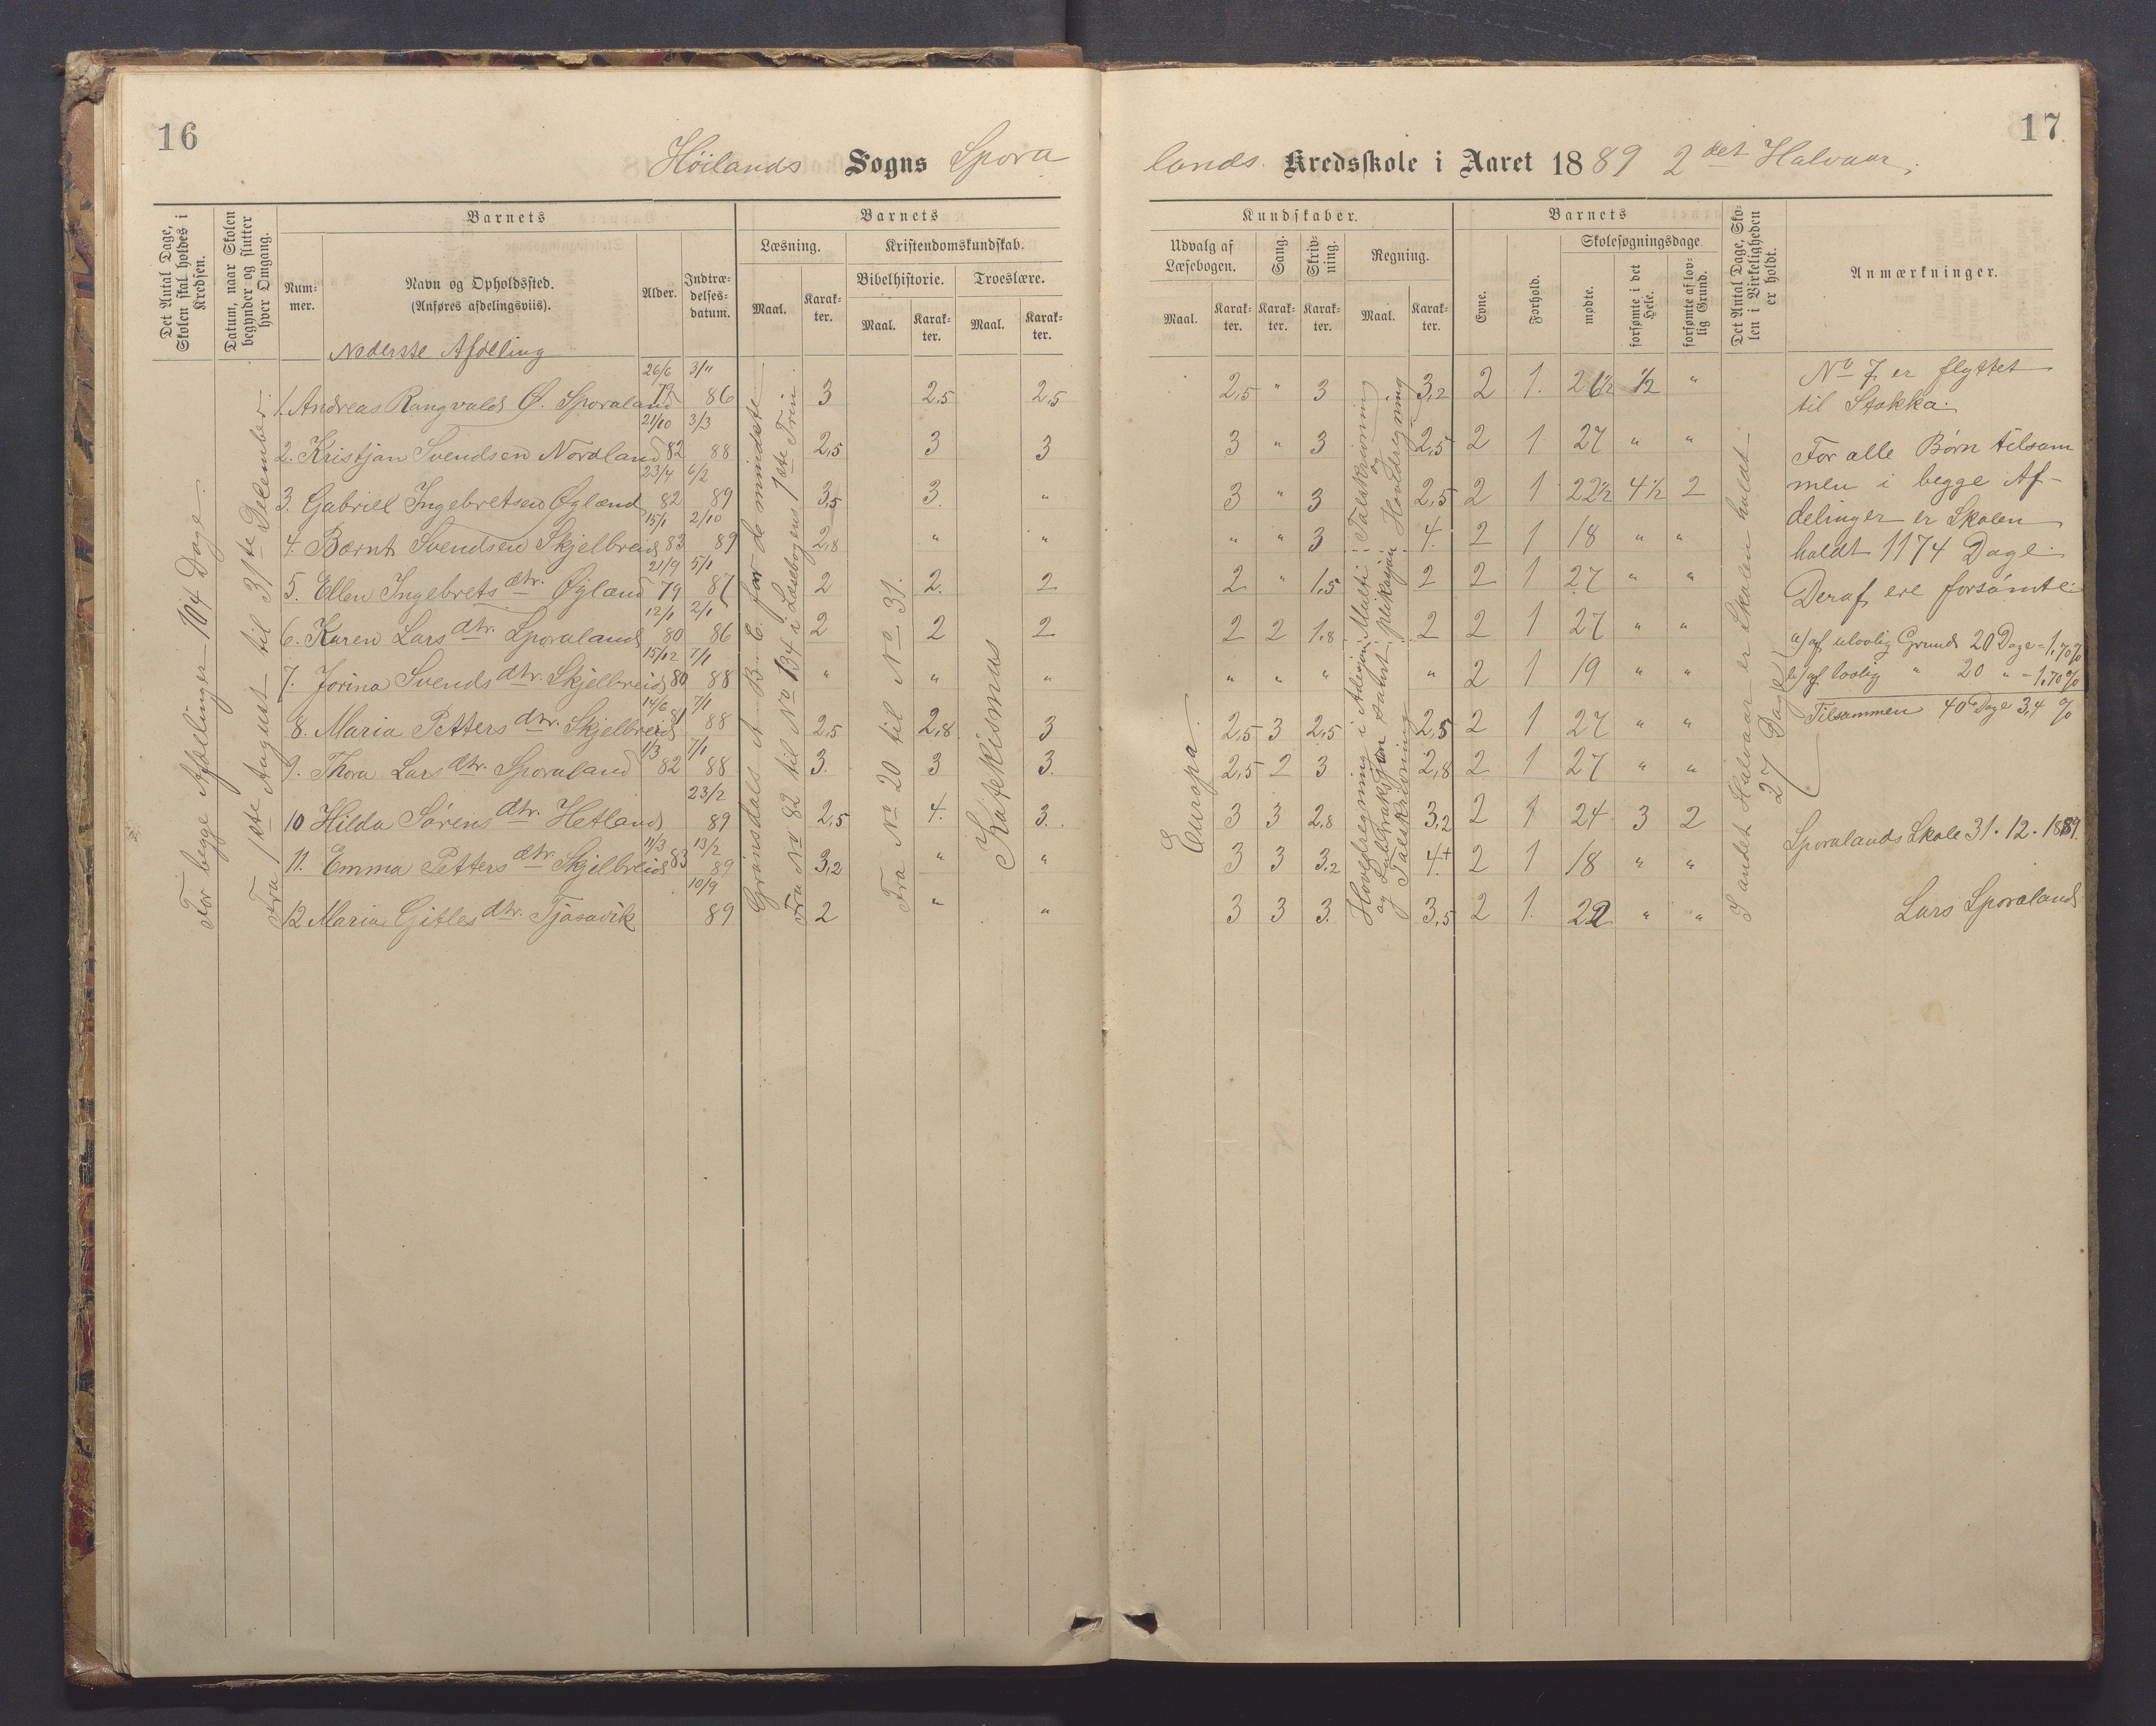 16
Höilands Sogns Spora
Det Antal Dage, Skolen skal holdes i Kredsen.
Datum, naar Skolen begynder og slutter hver Omgang.
Barnets
Num-mer.
Navn og Opholdssted.
(Anføres afdelingsviis).
Alder.
Indtræ-delses-datum.
Barnets
Læsning.
Maal.
Karak-ter.
Kristendomskundskab.
Bibelhistorie.
Maal.
Karak-ter.
Troeslære.
Maal.
Karak-ter.
For begge Afdelinger 104 Dage.
Fra 1ste August til 31te December.
Grönsdals A B C for de mindste.
Fra No 82 til No 134 i Læsebogens 1ste Trin.
Fra No 20 til No 31.
Katekismus
Nederste Afdeling
1. Andreas Rangvalds Ø. Sporaland 26/6 79 3/11 86 3 2,5 2,5
2. Kristjan Svendsen Nordland 21/10 82 3/3 88 2,5 3 3
3. Gabriel Ingebretsen Øgland 23/4 82 6/2 89 3,5 3. "
4. Bærnt Svendsen Skjelbreid 15/1 83 2/10 89 2,8 " "
5. Ellen Ingebrets dtr. Øgland 21/9 79 5/1 87 2 2. 2
6. Karen Lars dtr. Sporaland 12/1 80 2/1 86 2 2 2
7. Jorina Svends dtr. Skjelbreid 15/12 80 7/1 88 " " "
8. Maria Petters dtr. Skjelbreid 14/6 81 7/1 88 2,5 2,8 3
9. Thora Lars dtr. Sporaland 1/3 82 7/1 88 3. 3 3.
10 Hilda Sörens dtr. Hetland 23/2 89 2,5 4. 3.
11. Emma Petters dtr. Skjelbreid 11/3 83 13/2 89 3,2 " "
12 Maria Gitles dtr. Tjåsavik 10/9 89 2 " "
17
lands Kredsskole i Aaret 1889 2det Halvaar.
Kundskaber.
Udvalg af Læsebogen.
Maal.
Karak-ter.
Sang.
Karak-ter.
Skriv-ning.
Karak-ter.
Regning.
Maal.
Karak-ter.
Barnets
Evne.
Forhold.
Skolesøgningsdage.
mødte.
forsømte i det Hele.
forsømte af lov-lig Grund.
Det Antal Dage, Sko-len i Virkeligheden er holdt.
Anmærkninger.
Europa.
Hovedregning i Adisjon, Multi-plikasjon
og Subtraksjon samt
Talskrivning
Talskrivning og Hovedregning
I andet Halvaar er Skolen holdt
27 Dage
2,5 " 3 3,2 2 1. 26½ ½ "
3 " 3 2,5 2 1 27 " "
3 " 3 2,5 2 1 22½ 4½ 2
" " 3 4. 2 1 18 " "
2 " 1,5 2 2 1 27 " "
2 2 1,8 2 2 1 27 " "
" " " " 2 1 19 " "
2,5 3 2,5 2,5 2 1 27 " "
2,5 2 3 2,8 2 1 27 " "
3 3 2,8 3,2 2 1 24 3 2
3 3 3,2 4+ 2 1 18 " "
3 3 3. 3,5 2 1. 22 " "
No 7 er flyttet
til Stokka.
For alle Børn tilsam
men i begge Af-
delinger er Skolen
holdt 1174 Dage.
Deraf ere forsömte
a) af ulovlig Grund 20 Dage = 1,70%
b) af lovlig " 20 " = 1,70%
Tilsammen 40 Dage 3,4 %
Sporalands Skole 31.12.1889.
Lars Sporaland